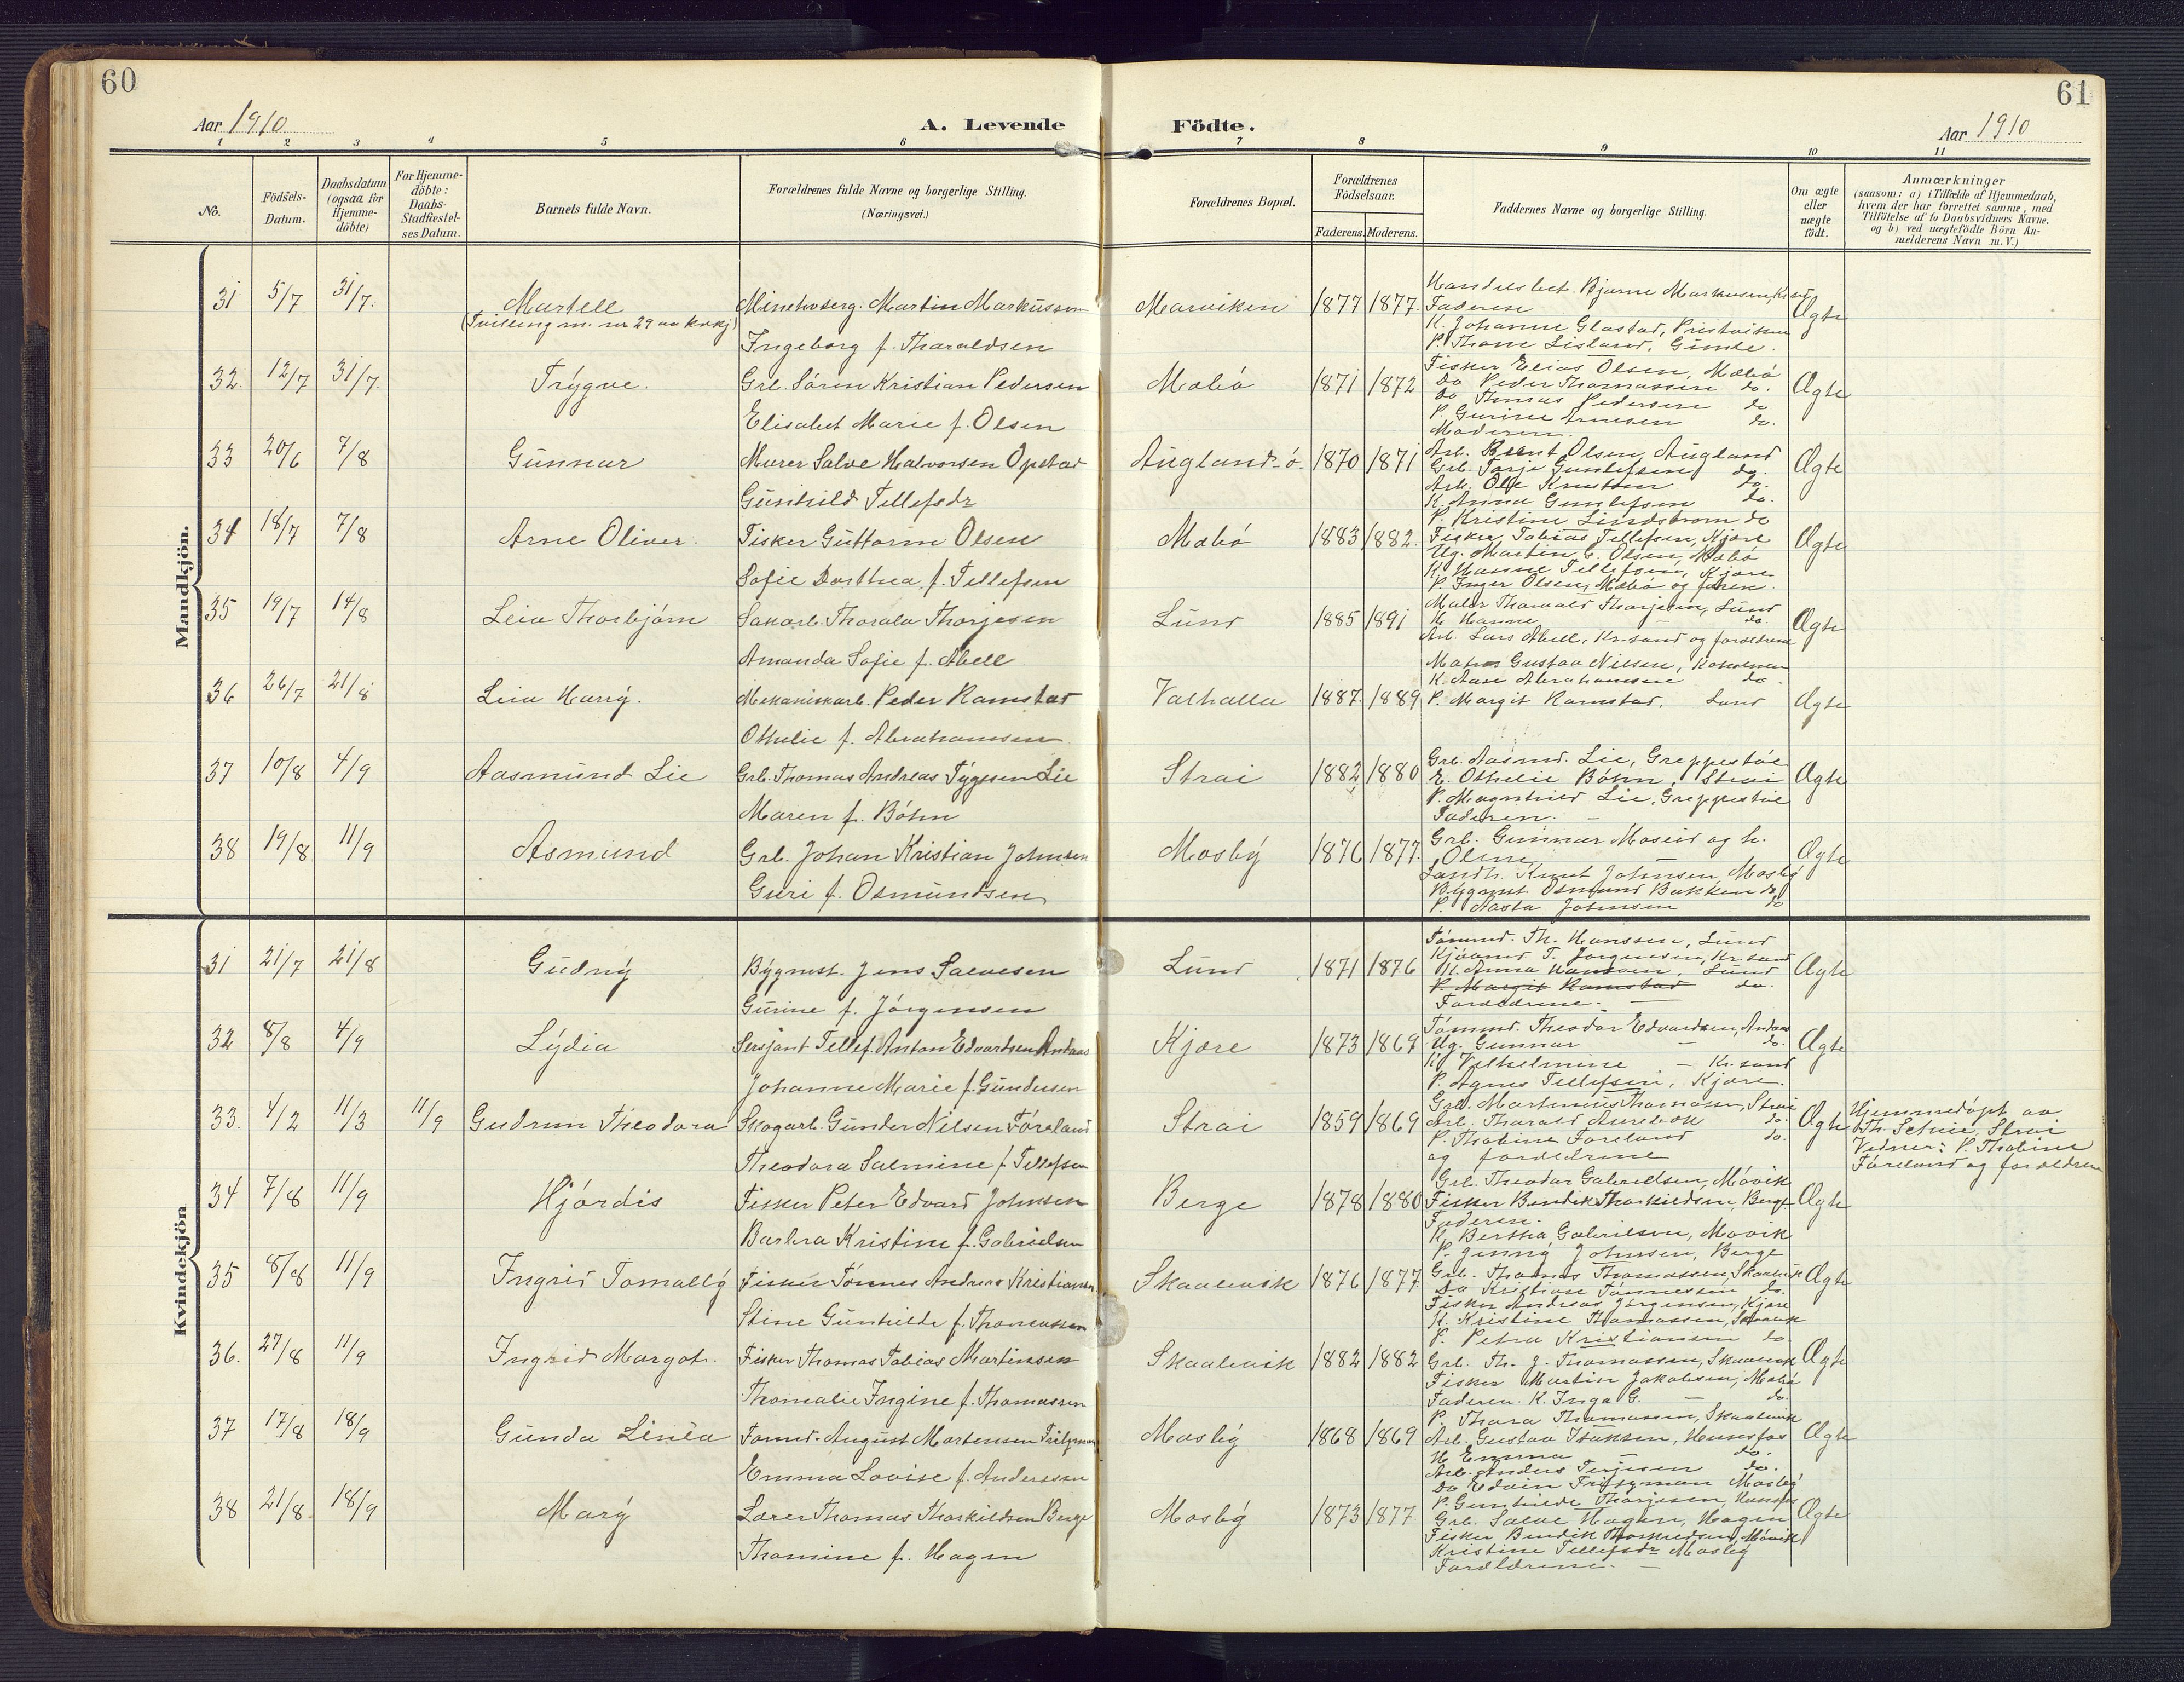 60
61
Aar 1910
A. Levende
Födte.
Aar 1910
1 2 3 4 5 6 7 8 9 10 11
No.
Födsels-
Datum.
Daabsdatum
(ogsaa for
Hjemme-
döbte)
For Hjemme-
döbte:
Daabs-
Stadfæstel-
ses Datum.
Barnets fulde Navn.
Forældrenes fulde Navne og borgerlige Stilling.
(Næringsvei.)
Forældrenes Bopæl.
Forældrenes
Födselsaar.
Faderens. Moderens.
Faddernes Navne og borgerlige Stilling.
Om ægte
eller
uægte
födt.
Anmærkninger
(saasom: a) i Tilfælde af Hjemmedaab,
hvem der har forrettet samme, med
Tilföielse af to Daabsvidners Navne,
og b) ved uægtefödte Börn An-
melderens Navn m. V.)
Mandkjön.
31 5/7 31/7. Martell
(Tvilling m. nr 29 av kvkj)
Martin Markussen
Ingeborg f. Tharaldsen
Marviken 1877 1877.
Handelsbet. Bjarne Markussen, Kr.sand
Faderen
K. Johanne Glastad,
P. Thone Lisland, Gimle.
Ægte
32. 12/7 31/7. Trygve.
Grb. Sören Kristian Pedersen
Elisabet Marie f. Olsen
Mæbö 1871 1872
Fisker Elias Olsen, Mæbö
Do Peder Thomassen do.
Do Thomas Pedersen do
P. Gurine Arnesen do.
Moderen.
Ægte
33 20/6 7/8 Gunnar
Murer Salve Halvorsen Opstad
Gunhild Tellefsdr
Augland-ö- 1870 1871
Arb. Bernt Olsen, Augland
Grb. Tarje Gunlefsen do.
Arb. Ole Knutson do.
K. Anna Gunlefsen do.
P. Kristine Lindstrøm do
Ægte
34 18/7 7/8 Arne Oliver.
Fisker Guttorm Olsen
Sofie Dorthea f. Tellefsen
Mæbö 1883 1882.
Fisker Tobias Tellefsen, Kjære
Ug. Martin E. Olsen, Mæbö
K. Hanne Tellefsen, Kjære
P. Inger Olsen, Mæbö og faren.
Ægte
35 19/7 14/8 Leiv Thorbjørn
Thorvald Thorjesen
Amanda Sofie f. Abell
Lund 1885 1891
Maler Thorvald Thorjesen, Lund
K Hanne - do.
Arb. Lars Abell, Kr.sand og forældrene
Ægte
36 26/7 21/8 Leiv Harry.
Mekaniskarb. Peder Ramstad
Othelie f. Abrahamsen
Valhalla 1887. 1889
Gustav Nilsen,
K. Aase Abrahamsen do.
P. Margit Ramstad, Lund
Ægte
37 10/8 4/9 Aasmund Lie
Grb. Thomas Andreas Tygesen Lie
Maren f. Böhn
Strai 1882 1880
Grb. Aasmd. Lie, Greppestöl
E. Othelie Böhn, Strai
P. Magnhild Lie, Greppestöl
Faderen. -
Ægte
38 19/8 11/9 Asmund
Grb. Johan Kristian Johnsen
Guri f. Osmundsen
Mosby 1876 1877.
Grb. Gunnar Moseid og h.
Oline
Landh. Knut Johnsen, Mosby
Bygmst. Osmund Bakken do
P. Aasta Johnsen do
Ægte
Kvindekjön
31 21/7 21/8 Gudny
Bygmst. Jens Salvesen
Gurine f. Jörgensen
Lund 1871 1876
Tömmd. Th. Hanssen, Lund
Kjöbmd T. Jörgensen, Kr.sand
K. Anna Hanssen, Lund
P. Margit Ramstad do.
Forældrene. -
Ægte
32 8/8 4/9 Lydia
Sersjant Tellef Anton Edvardsen Andaas
Johanne Marie f. Gundersen
Kjære 1873 1869
Tömmd. Theodor Edvardsen, Andaas
Ug. Gunnar - do.
K. Vilhelmine - Kr.sand
P. Agnes Tellefsen, Kjære.
Ægte
33. 4/2 11/3 11/9 Gudrun Theodora
Skogarb. Gunder Nilsen Föreland
Theodora Salmine f. Tellefsen
Strai 1859 1869
Grb. Martinius Thomassen, Strai
Arb. Tharald Aurebæk do.
P. Thobine Föreland do.
og forældrene
Ægte
Hjemmedöpt av
Th. Strai
Vidner: P. Thobine
Föreland og forældrene
34 7/8 11/9 Hjördis
Fisker Peter Edvard Johnsen
Barbra Kristine f. Gabrielsen
Berge 1878 1880
Grb. Theodor Gabrielsen, Mövik
Fisker Bendik Thorkildsen, Berge
Faderen.
K. Bertha Gabrielsen, Mövik
P. Jenny Johnsen, Berge
Ægte
35 8/8 11/9 Ingrid Tomally
Fisker Tönnes Andreas Kristiansen
Stine Gunhilde f. Thomassen
Skaalevik 1876 1877
Grb. Thomas Thomassen, Skaalevik
Do Kristian Tönnessen do.
Fisker Andreas Jörgensen, Kjære
K. Kristine Thomassen, Skaalevik
P. Petra Kristiansen do
Ægte
36. 27/8 11/9 Ingrid Margot.
Fisker Thomas Tobias Martinsen
Thomalie Ingine f. Thomassen
Skaalevik 1882 1882
Grb. Th. J. Thomassen, Skaalevik
Fisker Martin Jakobsen, Mæbö
Faderen. K. Inga G. - do.
P. Thora Thomassen, Skaalevik
Ægte
37 17/8 18/9 Gunda Linéa
August Mortensen Fritzman
Emma Lovise f. Anderssen
Mosby 1868 1869
Arb. Gustav Isaksen, Hunsfos
K Emma - do.
Arb. Anders Terjesen do.
Do Edvin Fritzman Mosby
P. Gunhilde Thorjesen, Hunsfos
Ægte
38 21/8 18/9 Mary
Lærer Thomas Thorkildsen Berge
Thomine f. Hagen
Mosby 1873 1877
Grb. Salve Hagen, Hagen
Fisker Bendik Thorkildsen, Mövik
Kristine Tellefsdr Mosby
Forældrene. -
Ægte